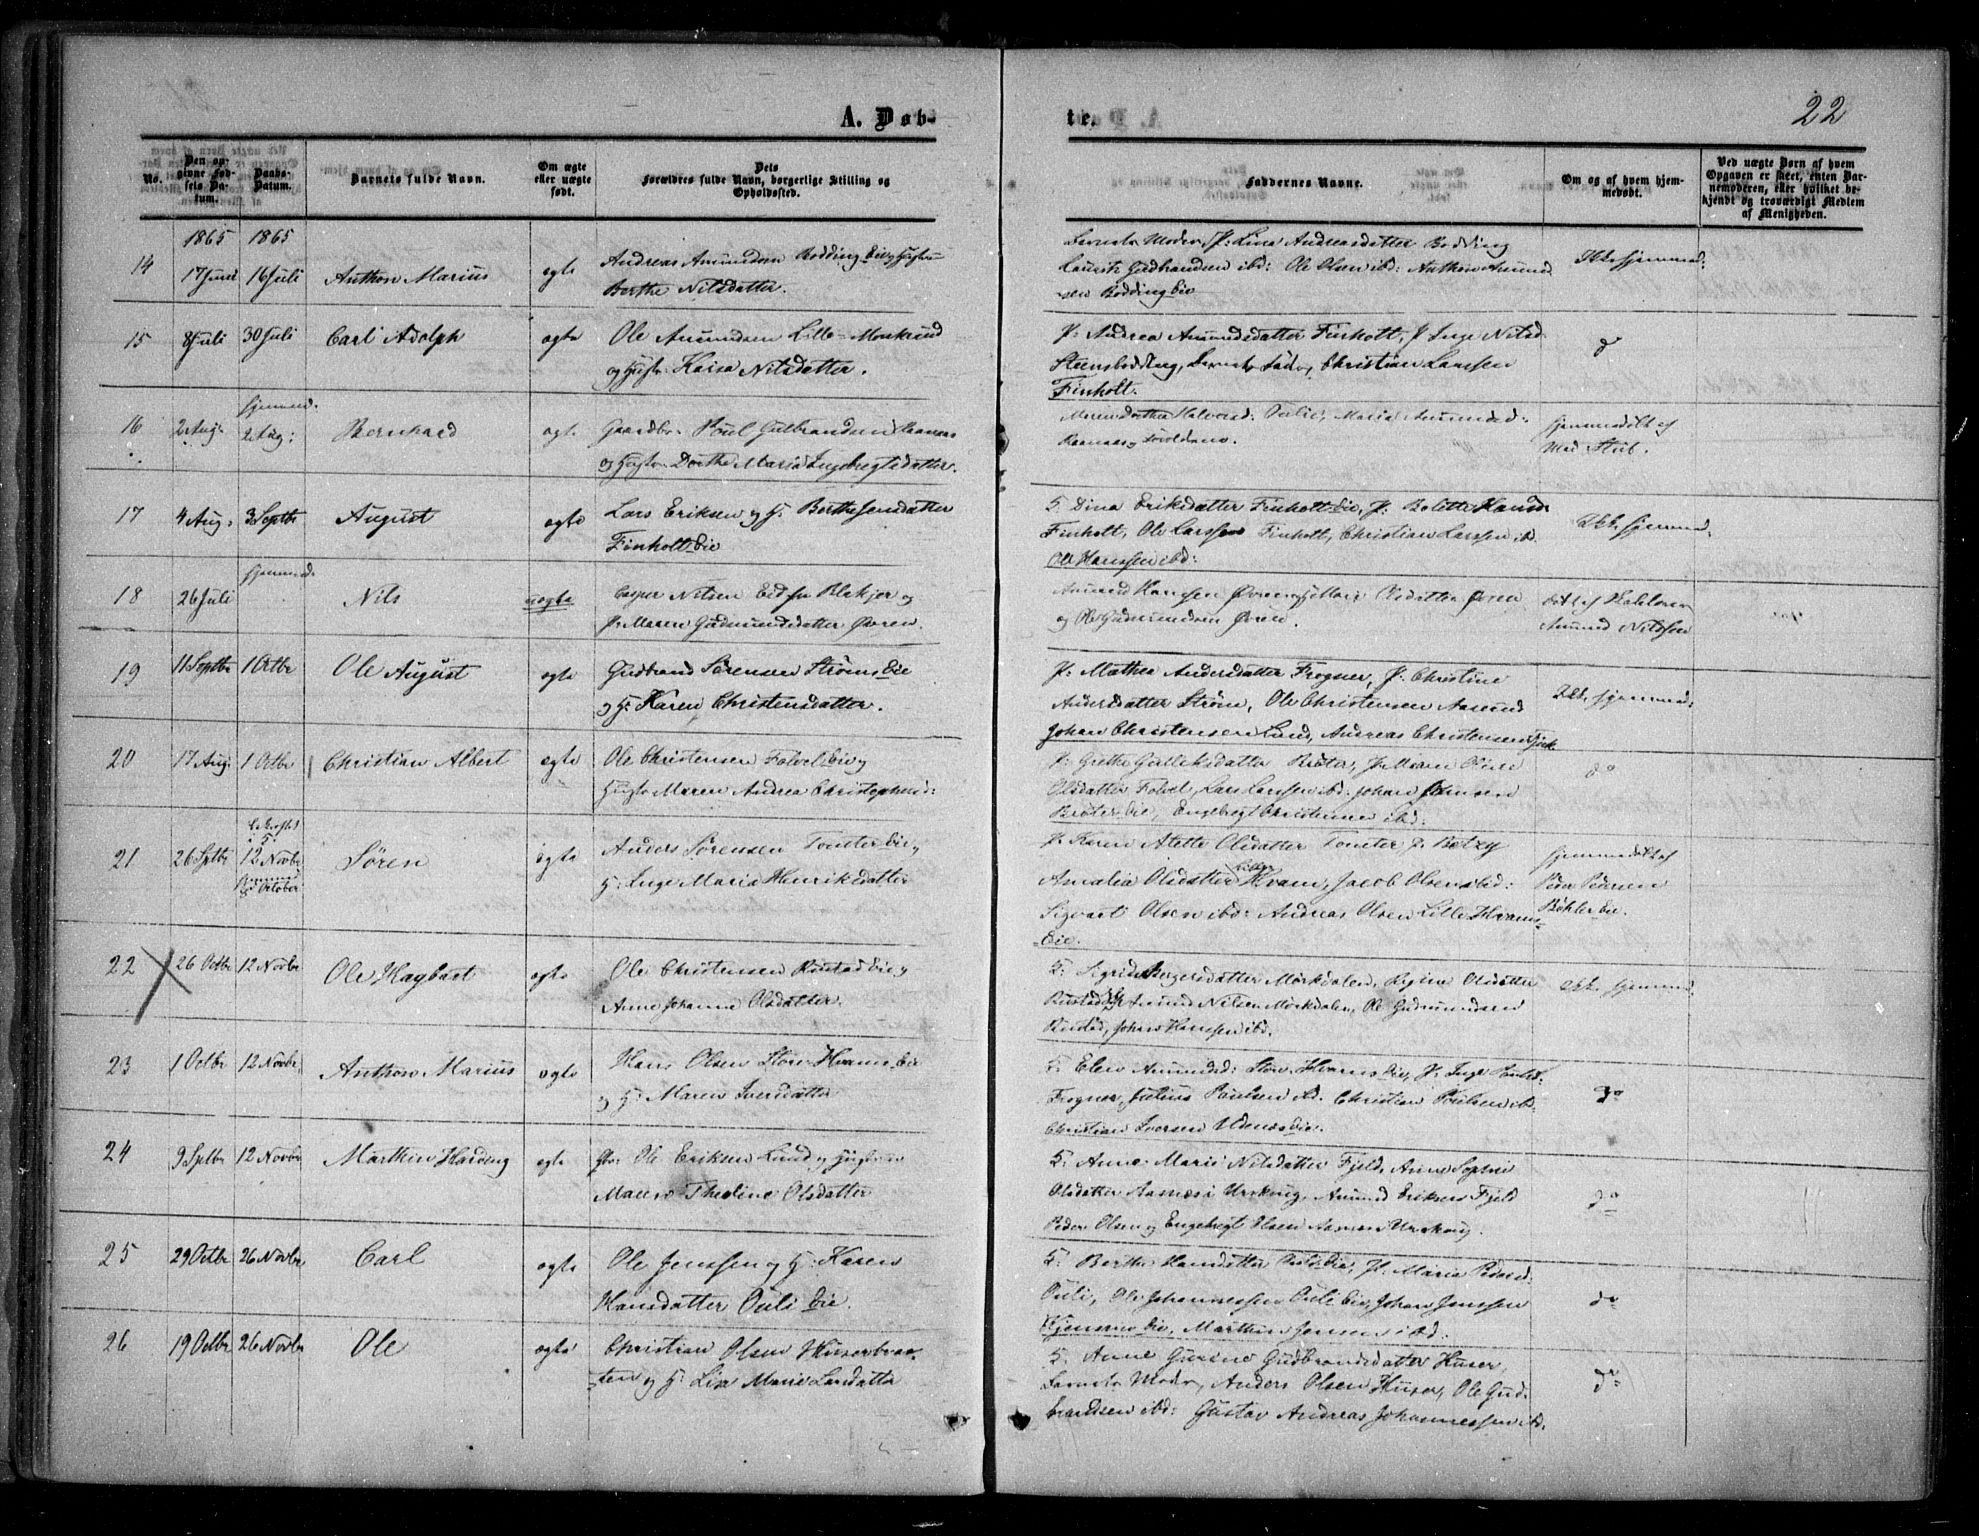 A. Døb-
te.
22
No.
Den op-
givne Fød-
sels Da-
tum.
Daabs-
Datum.
Barnets fulde Navn.
Om ægte
eller uægte
født.
Dets
Forældres fulde Navn, borgerlige Stilling og
Opholdssted.
Faddernes Navne.
Om og af hvem hjem-
medøbt.
Ved uægte Børn af hvem
Opgaven er skeet, enten Bar-
nemoderen, eller hvilket be-
kjendt og troværdigt Medlem
af Menigheden.
1865 1865
14 17 Juni 16 Juli Anthon Marius ægte
Andreas Amundsen Bodding Eie og Hustru
Berthe Nilsdatter.
Barnets Moder, P: Lina Andreasdatter Bodding
Laurits Gudbrandsen ibd: Ole Olsen ibd: Anthon Amund
sen Bodding Eie
Ikke hjemmed:
15 8 Juli 30 Juli Carl Adolph ægte
Ole Amundsen Lille-Morkrud
og Hustr: Kaisa Nilsdatter.
P: Andrea Amundsdatter Finholt, P Inge Nilsd
Steensbodding, Barnets Fader, Christian Larssen
Finholt.
do
16 2 Aug: hjemmed.
2 Aug: Bernhard ægte
Gaardbr. Poul Gulbrandsen
og Hustr: Dorthe Maria Ingebregtsdatter.
Maren Dorthea Halvorsd: Maria Amundsd:
hjemmedøbt af
Mad Stub.
17 4 Aug: 3 Septbr August ægte
Lars Eriksen og H: Berthe Jensdatter
Finholt Eie
H: Dina Eriksdatter Finholt Eie, P: Bolette Hansd.
Finholt, Ole Larssen Finholt, Christian Larssen ibd.
Ole Hanssen ibd:
Ikke hjemmed.
18 26 Juli hjemmed. Nils uægte
Casper Nilsen Eid fra Blakjer og
P: Maren Gudmundsdatter Øvren.
Amund Hansen Øvren, Olsdatter Øvren
og Ole Gudmundsen Øvren.
døbt af
Amund Nilssen
19 11 Septbr 1 Octbr Ole August ægte
Gudbrand Sørensen Strøms Eie
og H: Karen Christensdatter.
P: Mathea Andersdatter Frogner, P: Christine
Andersdatter Strøm, Ole Christensen Aasrud
Johan Christensen Lund, Andreas Christensen
Ikke hjemmed:
20 17 Aug: 1 Octbr Christian Albert ægte
Ole Christensen Folvels Eie og
Hustr Maren Andrea Christophersd:
P: Grethe Gulliksdatter Brøter, P: Maren
Olsdatter Folvel, Lars Larssen ibd: Johan Johnsen
Brøter Eie, Engebregt Christensen ibd:
do
21 26 Sptbr
12 Novbr
October Søren ægte
Anders Sørensen Tomter Eie og
H: Inge Maria Henriksdatter
P: Karen Alette Olsdatter Tomter, P: Betzy
Amalia Olsdatter Lille Hvam, Jacob Olsen ibd:
Sigvart Olsen ibd: Andreas Olsen Lille Hvams
Eie.
hjemmedøbt af
Peder Pedersen
Bøhler Eie.
22 26 Octbr 12 Novbr Ole Hagbart ægte
Ole Christensen Rustad Eie og
Anne Johanne Olsdatter.
H: Sigrid Aagesdatter Mørkdalen, Regine Olsdatter
Rustad, Amund Nilsen Mørkdalen, Ole Gudmundsen
Rustad, Johan Hanssen ibd.
Ikke hjemmed.
23 1 Octbr 12 Novbr. Anthon Marius ægte
Hans Olsen Store Hvams Eie
og H: Maren Iversdatter
H: Elen Amundsd: Store Hvams Eie, P: Inge Poulsd.
Frogner, Julius Poulsen ibd. Christian Poulsen ibd.
Christian Iversen Udnæs Eie.
do
24 9 Sptbr 12 Novbr Marthin Harding ægte
Gbr. Ole Eriksen Lund og Hustru
Maren Theoline Olsdatter
H: Anne Marie Nilsdatter Fjeld, Anne Sophie
Olsdatter Aamæs i Urskoug, Amund Eriksen Fjeld
Peder Olsen og Engebregt Olsen Aamæs i Urskoug.
do
25 29 Octbr 26 Novbr Carl ægte
Ole Jenssen og H: Karen
Hansdatter Ouli Eie.
H: Berthe Hansdatter Ouli Eie, P: Maria Pedersd:
Ouli, Ole Johannessen Ouli Eie, Johan Jenssen
Eie, Marthin Jensen ibd:
do
26 19 Octbr 26 Novbr Ole ægte
Christian Olsen Huserbraa-
ten og H: Lise Marie Larsdatter
H: Anne Gurine Gudbrandsdatter Huser,
Barnets Moder, Anders Olsen Huser, Ole Gud-
brandsen ibd: Gustav Andreas Johannessen ibd.
do